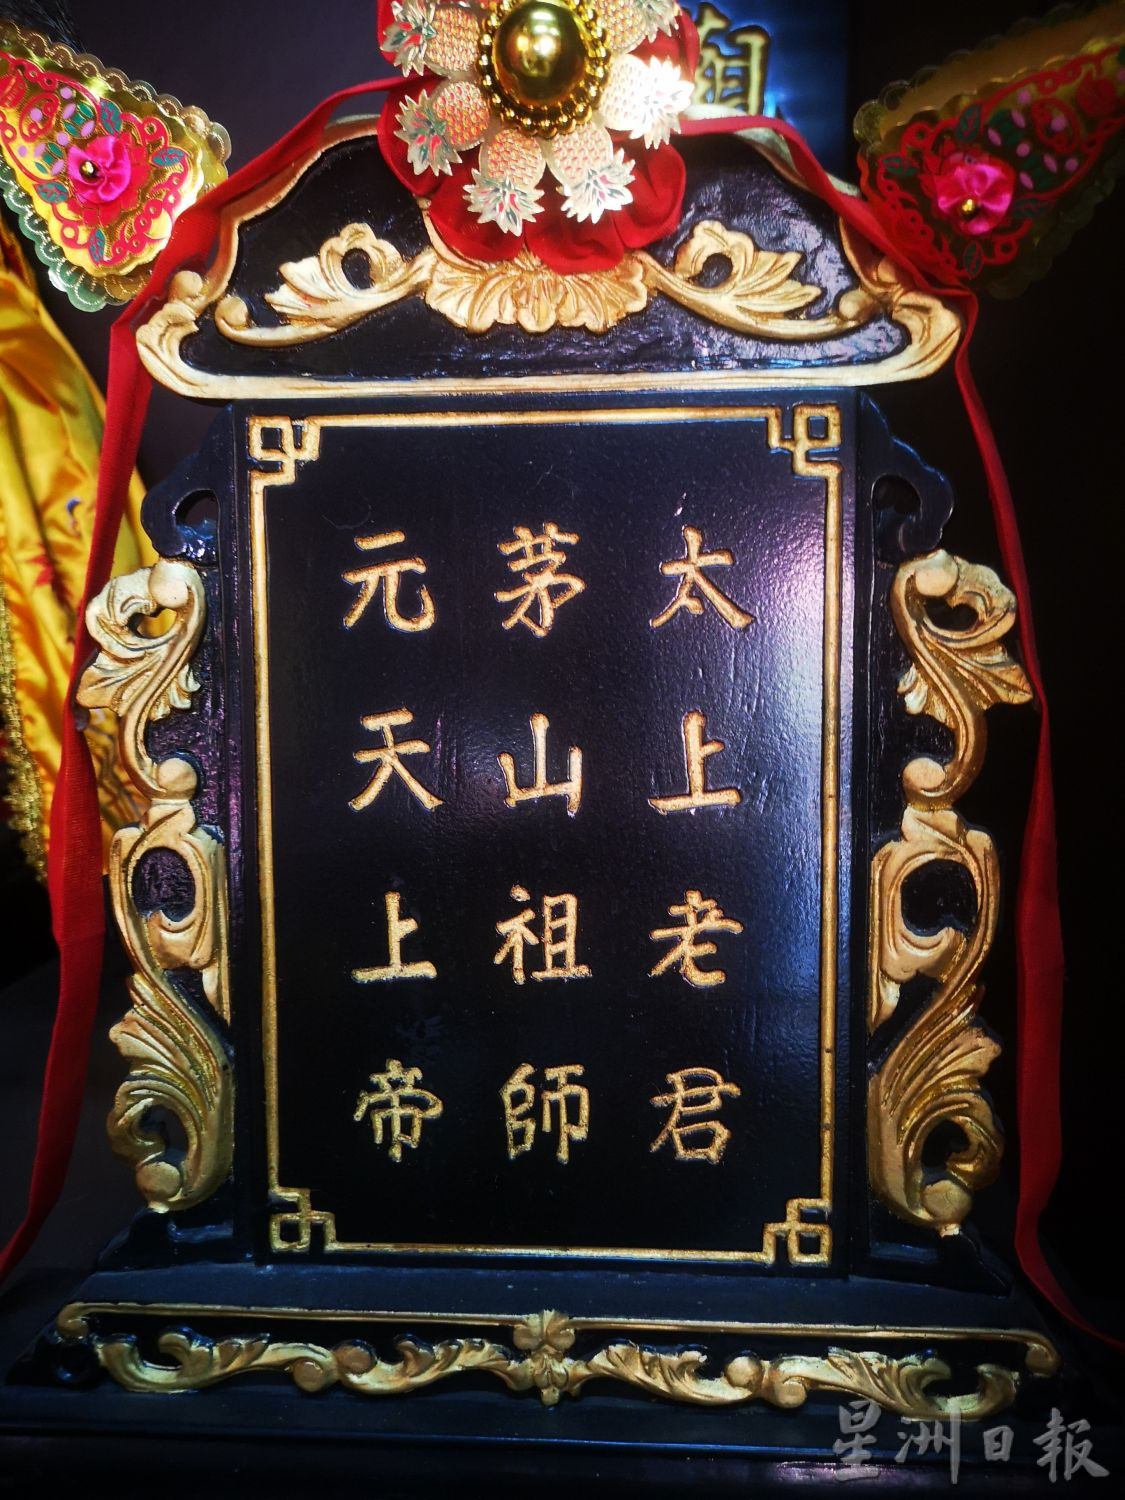 廟
太上老君
茅山祖師
元天上帝
星洲日報